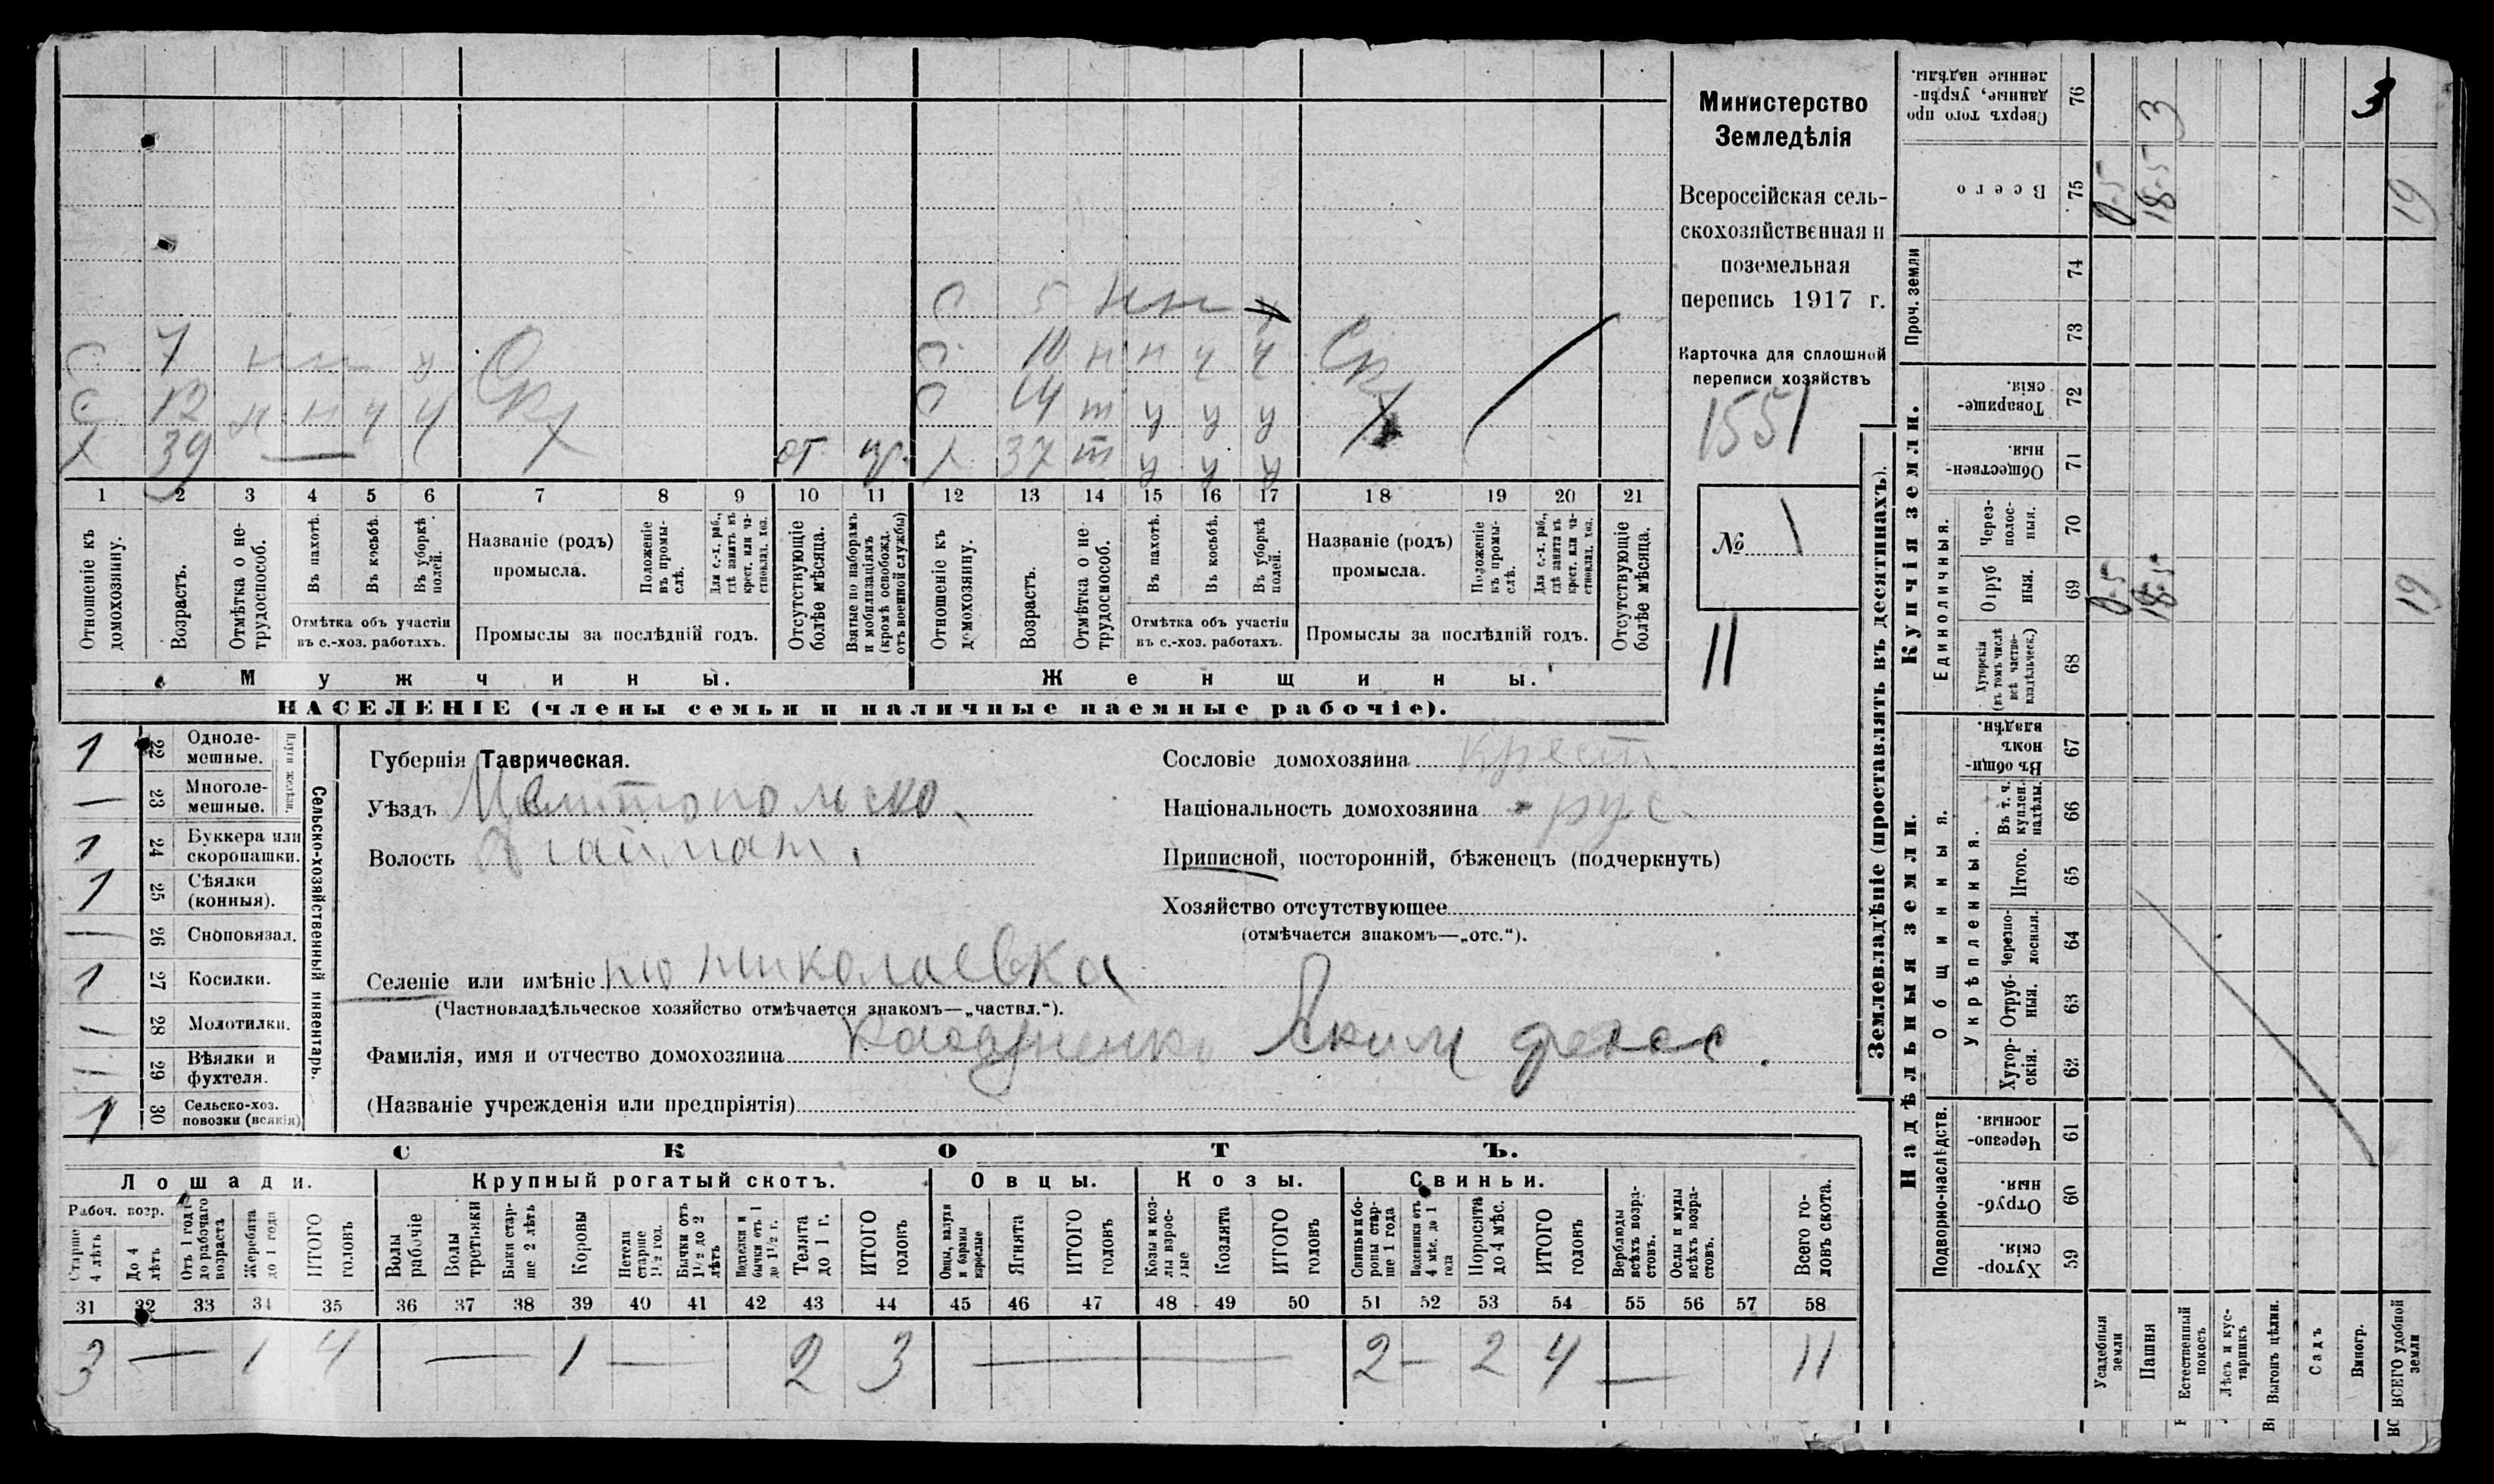 Министерство
Земледѣлія
Всероссійская сель-
скохозяйственная и
поземельная
перепись 1917 г.
Карточка для сплошной
переписи хозяйствъ
1551
№ 1
11
С 5 н н у
С 7 н н у С 10 н н ч ч
С 12 н н ч ч С 14 т у у у
Х 39 — от Х 37 т у у у
1 2 3 4 5 6 7 8 9 10 11 12 13 14 15 16 17 18 19 20 21
Отношеніе къ домохозяину.
Возрастъ.
Отмѣтка о не-трудоспособ.
Въ пахотѣ.
Въ косьбѣ.
Въ уборкѣ полей.
Отмѣтка объ участіи
въ с.-хоз. работахъ.
Названіе (родъ)
промысла.
Положеніе въ промы-слѣ.
Для с.-х. раб., гдѣ занятъ въ крест. или ча-стновлад. хоз.
Промыслы за послѣдній годъ.
Отсутствующіе болѣе мѣсяца.
Взятые по наборамъ и мобилизаціямъ (кромѣ освобожд. отъ военной службы)
Отношеніе къ домохозяину.
Возрастъ.
Отмѣтка о не трудоспособ.
Въ пахотѣ.
Въ косьбѣ.
Въ уборкѣ полей.
Отмѣтка объ участіи
въ с.-хоз. работахъ.
Названіе (родъ)
промысла.
Положеніе въ промы-слѣ.
Для с.-х. раб., гдѣ занята въ крест. или ча-стновлад. хоз.
Промыслы за послѣдній годъ.
Отсутствующіе болѣе мѣсяца.
Мужчины. Женщины.
НАСЕЛЕНІЕ (члены семьи и наличные наемные рабочіе).
1 22 Одноле-мешные.
— 23 Многоле-мешные.
Плуги желѣзн.
1 24 Буккера или скоропашки.
1 25 Сѣялки (конныя).
— 26 Сноповязал.
1 27 Косилки.
— 28 Молотилки.
— 29 Вѣялки и фухтеля.
1 30 Сельско-хоз. повозки (всякія)
Сельско-хозяйственный инвентарь.
Губернія Таврическая.
Уѣздъ
Волость
Селеніе или имѣніе Николаевка
(Частновладѣльческое хозяйство отмѣчается знакомъ—„частвл.“).
Фамилія, имя и отчество домохозяина Аким
(Названіе учрежденія или предпріятія)
Сословіе домохозяина крест.
Національность домохозяина рус.
Приписной, посторонній, бѣженецъ (подчеркнуть)
Хозяйство отсутствующее
(отмѣчается знакомъ—„отс.“).
СКОТЪ.
Лошади. Крупный рогатый скотъ. Овцы. Козы. Свиньи.
Рабоч. возр.
Старше 4 лѣтъ
До 4 лѣтъ
Отъ 1 года до рабочаго возраста
Жеребята до 1 года
ИТОГО головъ
Волы рабочіе
Волы третьяки
Быки стар-ше 2 лѣтъ
Коровы
Нетели старше 1½ год.
Бычки отъ 1½ до 2 лѣтъ
Подтелки и бычки отъ 1 до 1½ г.
Телята до 1 г.
ИТОГО головъ
Овцы, валухи и бараны взрослые
Ягнята
ИТОГО головъ
Козы и коз-лы взрос-лые
Козлята
ИТОГО головъ
Свиньи и бо-ровы стар-ше 1 года
Подсвинки отъ 4 мѣс. до 1 года
Поросята до 4 мѣс.
ИТОГО головъ
Верблюды всѣхъ возра-стовъ.
Ослы и мулы всѣхъ возра-стовъ.
Всего го-ловъ скота.
31 32 33 34 35 36 37 38 39 40 41 42 43 44 45 46 47 48 49 50 51 52 53 54 55 56 57 58
3 — 1 4 — 1 — 2 3 — 2 — 2 4 — 11
Землевладѣніе (проставлять въ десятинахъ).
Надѣльныя земли. Купчія земли.
Подворно-наслѣдств. Общинныя. Укрѣпленныя. Единоличныя. Проч. земли
59 Хутор-скія.
60 Отруб-ныя.
61 Черезпо-лосныя.
62 Хутор-скія.
63 Отруб-ныя.
64 Черезпо-лосныя.
65 Итого.
66 Въ т. ч. куплен. надѣлы.
67 Въ общи-номъ владѣн.
68 Хуторскія (въ томъ числѣ всѣ частно-владѣльческ.)
69 Отруб ныя.
70 Через-полос-ныя.
71 Обществен-ныя.
72 Товарище-скія.
73
74
75 Всего
76 Сверхъ того про данные, укрѣп-ленные надѣлы.
Усадебныя земли 0-5 0-5
Пашня 18-5 18-5 3
Естественный покосъ
Лѣсъ и кус-тарникъ
Выгонъ цѣлин.
Садъ
Виногр. 3
ВСЕГО удобной земли 19 19